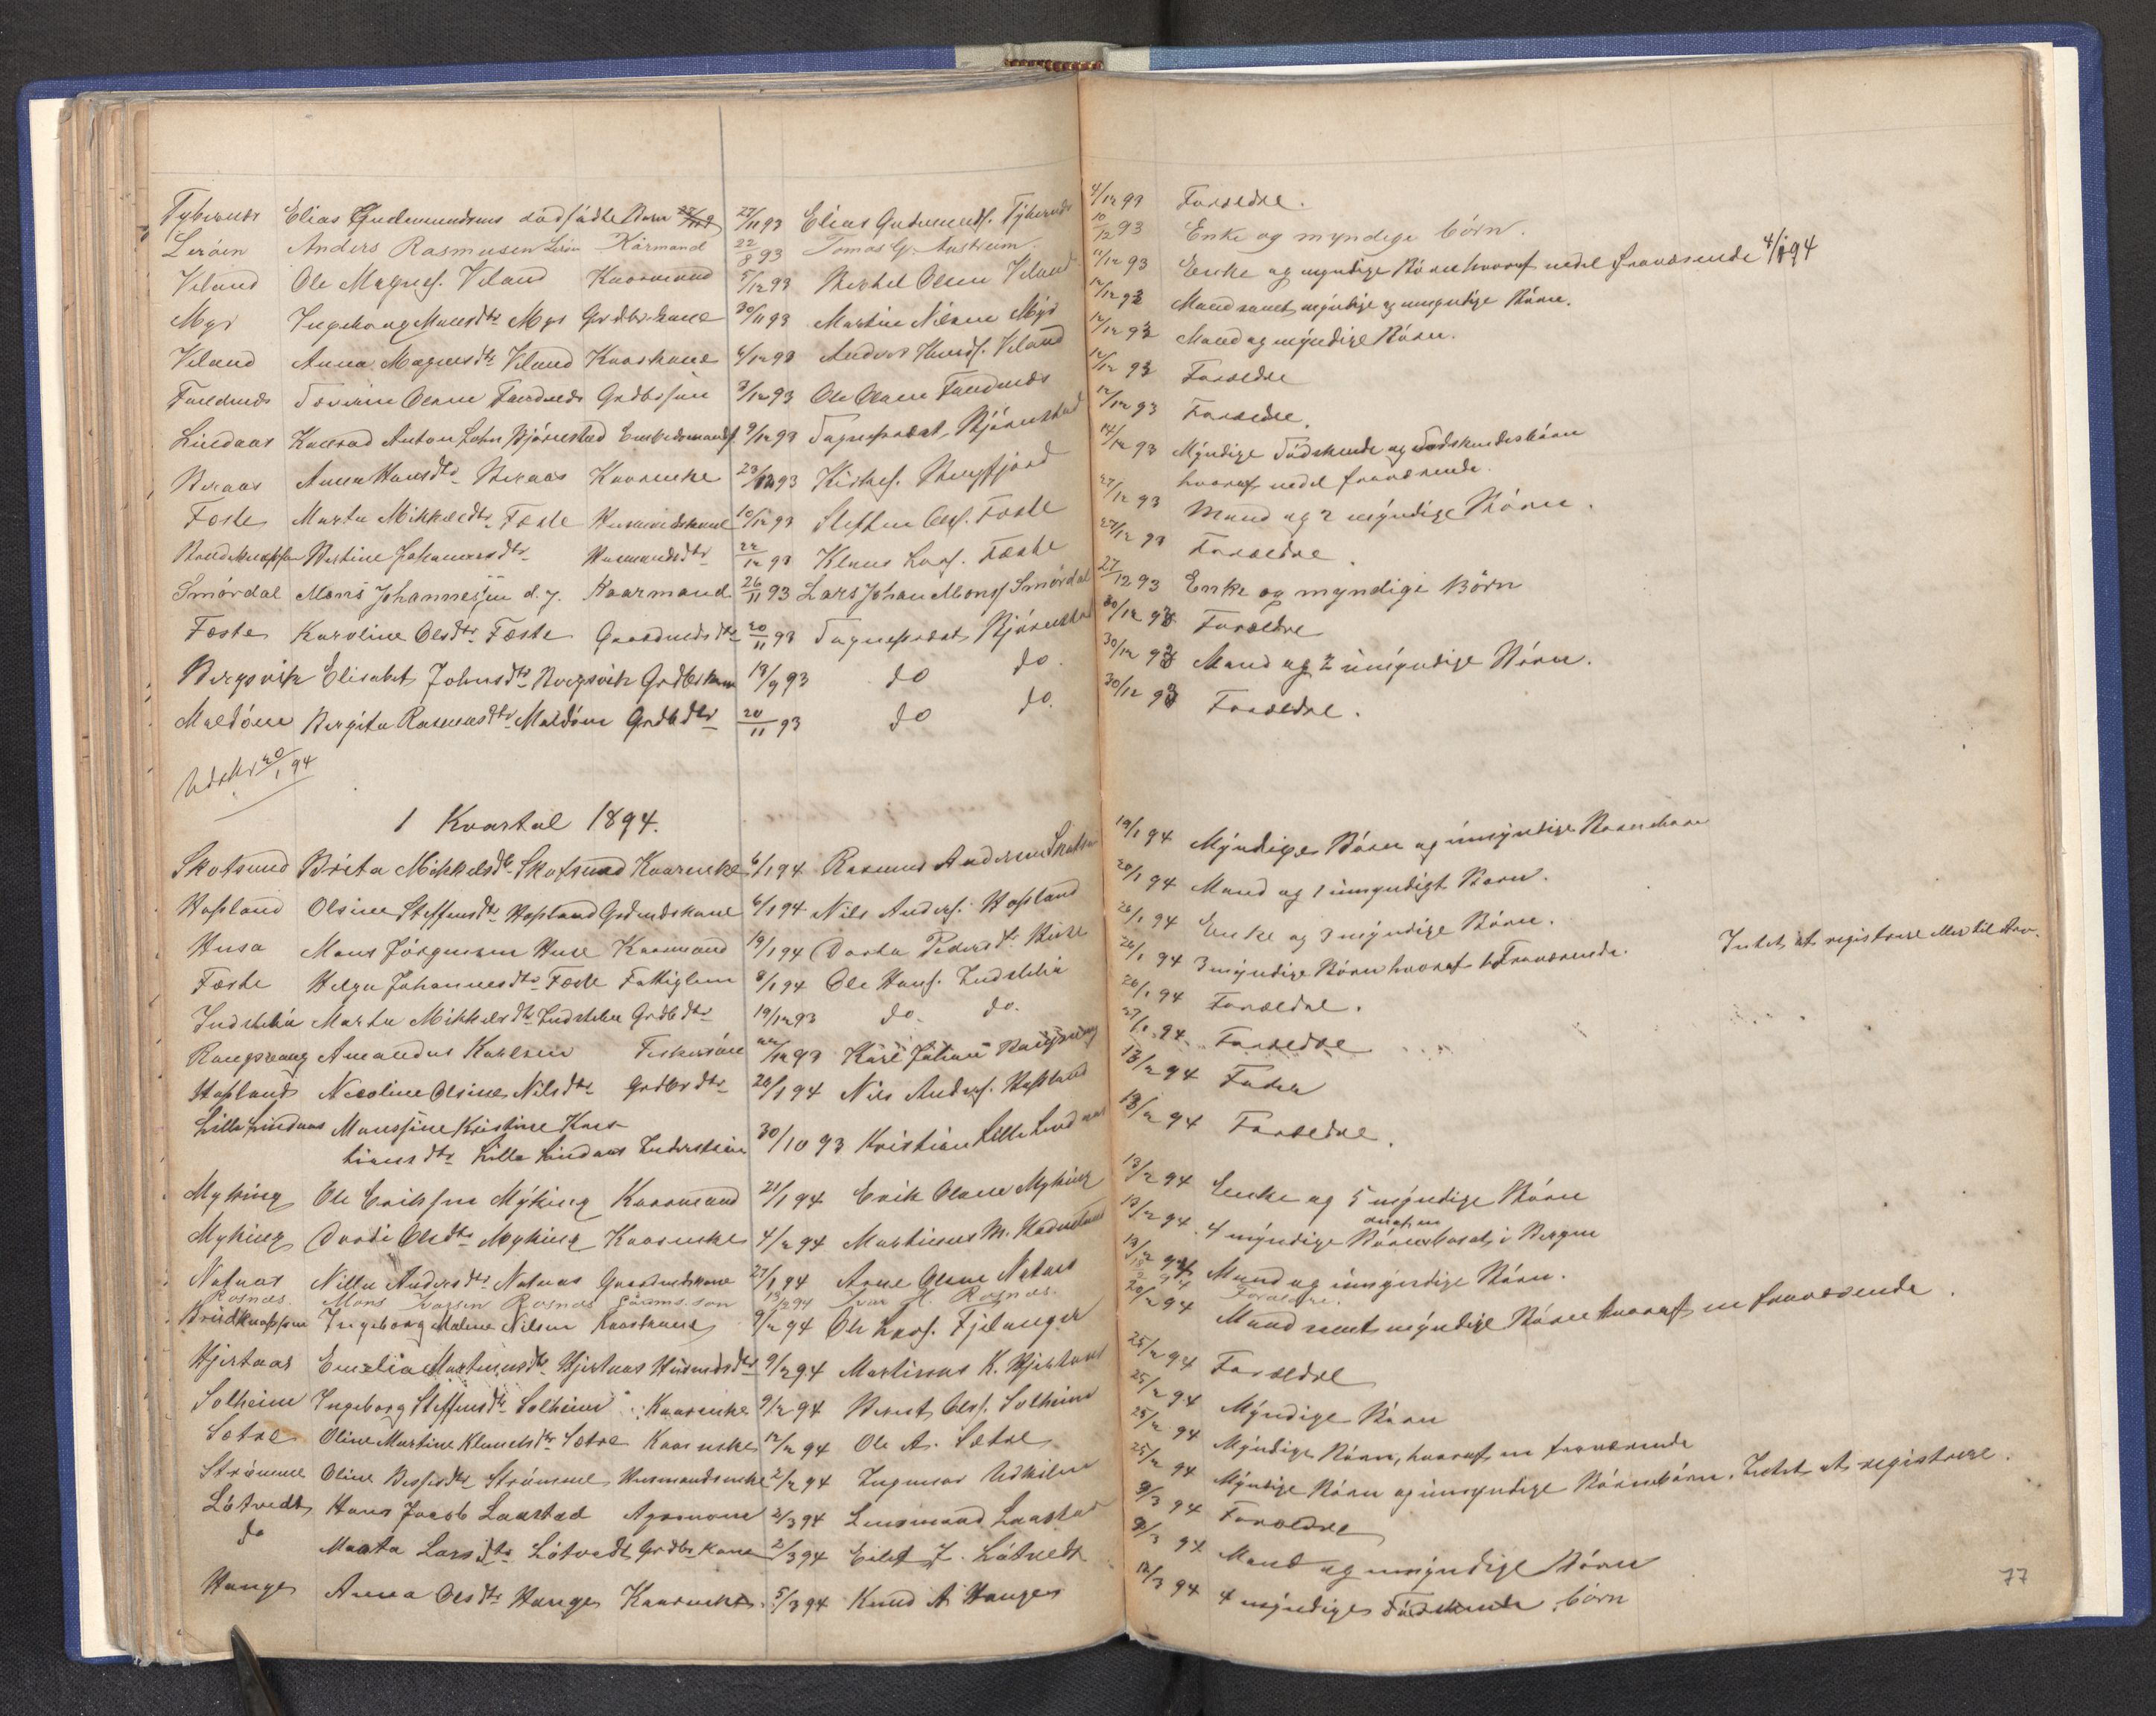 Elias Gudmundsens dødfødte Barn 27/11 93 Elias Gudmunds. 4/12 93 Forældre.
Lerøen Anders Rasmusen Lerøen Kårmand 22/8 93 Tomas G. Austreim 10/12 93 Enke og myndige börn.
Veland Ole Magnes. Veland Kaarmand 5/12 93 Berthel Olsen Veland 11/12 93 Enke og myndige Börn hvoraf nedel fraværende 4/1 94
Myr Ingeborg Monsdtr Myr Grdbrkone 30/11 93 Martin Nilsen Myr 12/12 93 Mand samt myndige og umyndige Börn.
Veland Anna Magnesdtr Veland Kaarkone 6/12 93 Anders Knuds. Veland 12/12 93 Mand og myndige Börn.
Severin Olsen Grdbrsøn 3/12 93 Ole Olsen 12/12 93 Forældre
Lindaas Konrad Anton John Bjørnestad Embedsmands. 9/12 93 Sognepræst Bjørnestad 12/12 93 Forældre.
Beraas Anna Hansdtr Beraas Kaarenke 23/11 93 Kirkes. Bergfjord 14/12 93 Myndige Sødskende og Sødskendebörn
hvoraf nedel fraværende.
Foste Marta Mikkelsdtr Foste Husmandskone 10/12 93 Steffen Ols. Foste 27/12 93 Mand og 2 myndige Börn.
Bertine Johannesdtr Husmandsdtr 22/12 93 Klaus Lars. Foste 27/12 93 Forældre
Smørdal Mons Johannessen d.y. Kaarmand 26/11 93 Lars Johan Mons. Smørdal 27/12 93 Enke og myndige Börn
Fæste Karoline Olsdtr Fæste Gaardmdsdtr 20/11 93 Sognepræst Bjørnestad 30/12 93 Forældre
Bergsvik Elisabet Johnsdtr Bergsvik Grdbrkone 13/9 93 do do. 30/12 93 Mand og 2 umyndige Börn.
Maldöen Bergita Rasmusdtr Maldöen Grdbdtr 20/11 93 do do. 30/12 93 Forældre.
Udskr 20/1 94
1 Kvartal 1894.
Skotsund Brita Mikkelsdtr Skotsund Kaarenke 6/1 94 Rasmus Andersen Skotsund 19/1 94 Myndige Börn og umyndige Barnebarn
Hopland Olsine Steffensdtr Hopland Grdmdskone 6/1 94 Nils Anders. Hopland 20/1 94 Mand og 1 umyndigt Barn.
Husa Mons Jørgensen Huse Kaarmand 19/1 94 Dorta Pedersdtr Huse 26/1 94 Enke og 3 myndige Börn.
Fæste Helga Johannesdtr Fæste Fattiglem 8/1 94 Ole Hans. Indstelia 26/1 94 3 myndige Börn hvoraf 1 Fraværende. Intet at registrere eller til Arv.
Indstelia Marta Mikkelsdtr Indstelia Grdbdtr 19/12 93 do. do. 26/1 94 Forældre.
Amandus Karlsen Fiskersøn 22/12 93 Karl Johan 27/1 94 Forældre
Hopland Nicoline Olsine Nilsdtr Grdbrdtr 26/1 94 Nils Anders. Hopland 13/2 94 Fader
Lille Lindaas Monssine Kristine Kris-
tiansdtr Lille Lindaas Inderstdtr 30/10 93 Kristian Lille Lindaas 13/2 94 Forældre.
Myking Ole Eriksen Myking Kaarmand 21/1 94 Erik Olsen Myking 13/2 94 Enke og 5 myndige Börn
Myking Dordi Olsdtr Myking Kaarenke 4/2 94 Martinus M. 13/2 94 4 myndige Börn bosat i Bergen
Nataas Nilla Andersdtr Nataas Gaardmdskone 27/1 94 Arne Olsen Nataas 13/2 94 Mand og umyndige Börn.
Rosnes. Mons Ivarsen Rosnes Gårms. søn 13/2 94 Ivar H. Rosnes. 18/2 94 Forældre.
Bruknappen Ingeborg Malene Nilsen Kaarkone 9/2 94 Ole Lars. Fjelanger 20/2 94 Mand samt myndige Börn hvoraf en fraværende.
Hjertaas Emelia Martinusdtr Hjertaas Husmdsdtr 9/2 94 Martinus K. Hjertaas 25/2 94 Forældre
Solheim Ingeborg Steffensdtr Solheim Kaarenke 9/2 94 Bernt Ols. Solheim 25/2 94 Myndige Börn
Sætre Oline Martine Sætre Kaarenke 12/2 94 Ole A. Sætre 25/2 94 Myndige Börn, hvoraf en fraværende
Strømme Oline Strømme Husmandsenke 2/2 94 Ingemar Udkilen 25/2 94 Myndige Börn og umyndige Börnebörn. Intet at registrere.
Løtvedt Hans Jacob Laastad Agronom 2/3 94 Lensmand Laastad 9/3 94 Forældre
do Marta Larsdtr Løtvedt Grdbrkone 2/3 94 Eilef J. Løtvedt 9/3 94 Mand og umyndige Börn
Hauge Anna Olsdtr Hauge Kaarenke. 5/3 94 Knud A Hauge 12/3 94 4 myndige Sødskende börn
77